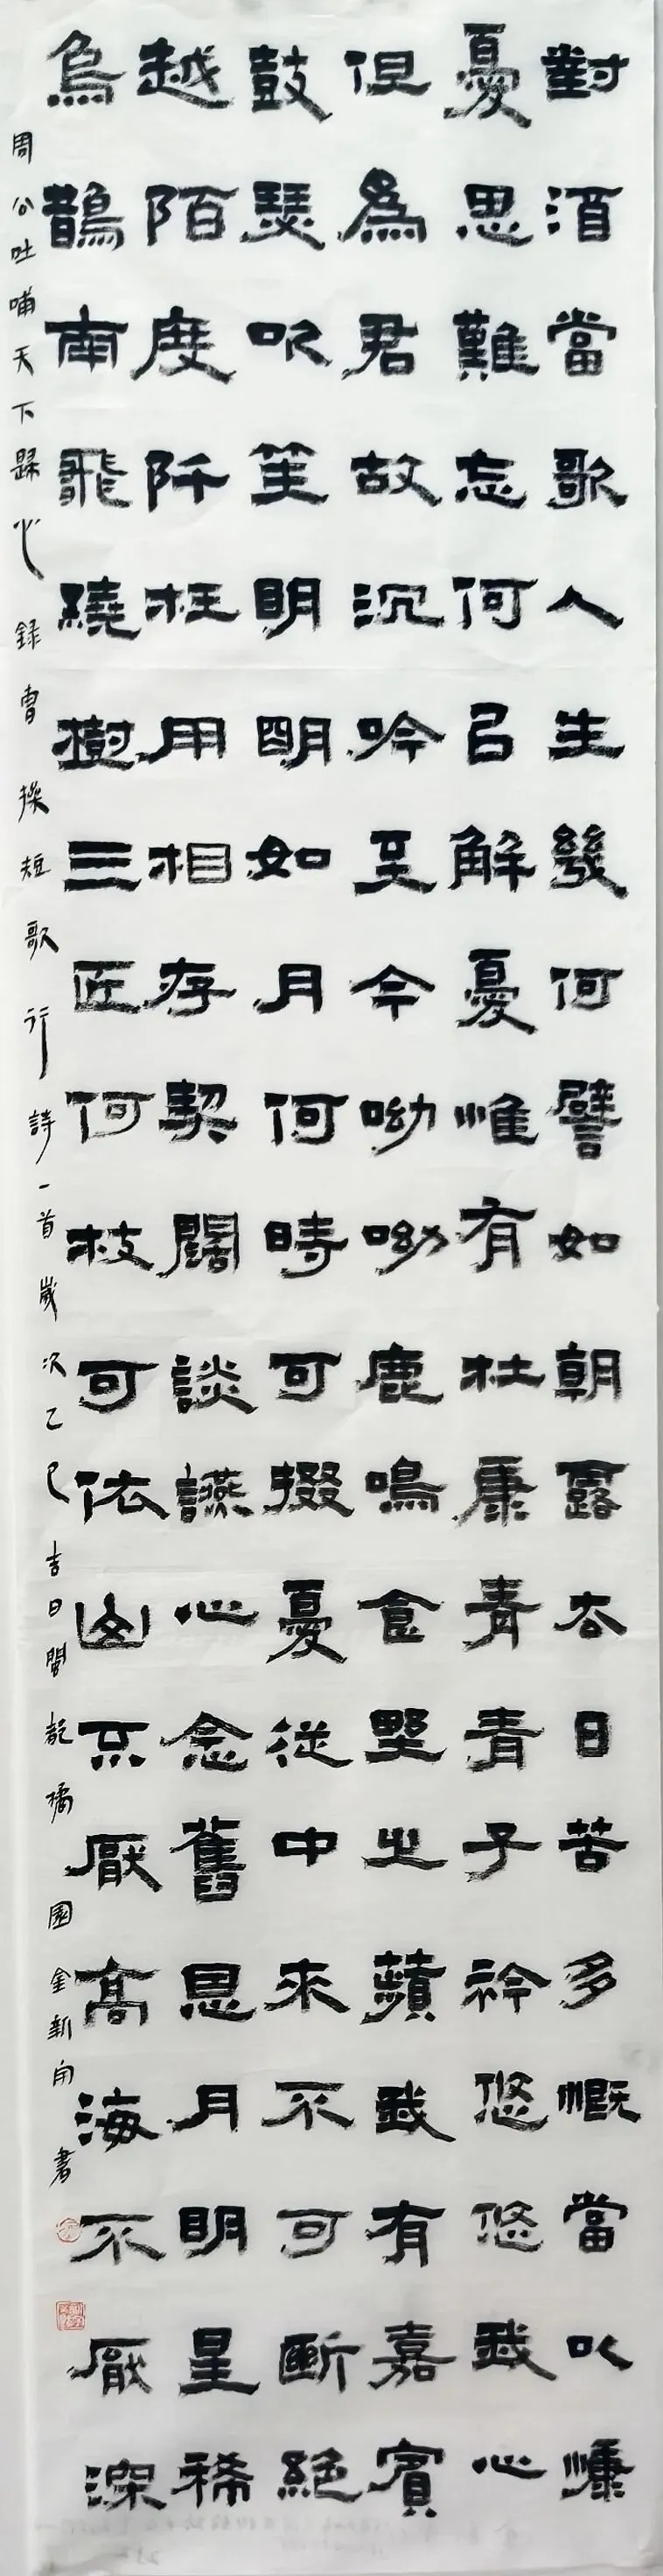 對酒當歌人生幾何譬如朝露去日苦多慨當以慷
憂思難忘何以解憂惟有杜康青青子衿悠悠我心
但為君故沉吟至今呦呦鹿鳴食野之蘋我有嘉賓
鼓瑟吹笙明明如月何時可掇憂從中來不可斷絕
越陌度阡枉用相存契闊談讌心念舊恩月明星稀
烏鵲南飛繞樹三匝何枝可依山不厭高海不厭深
周公吐哺天下歸心 錄曹操短歌行詩一首歲次乙巳吉日 園金新 書